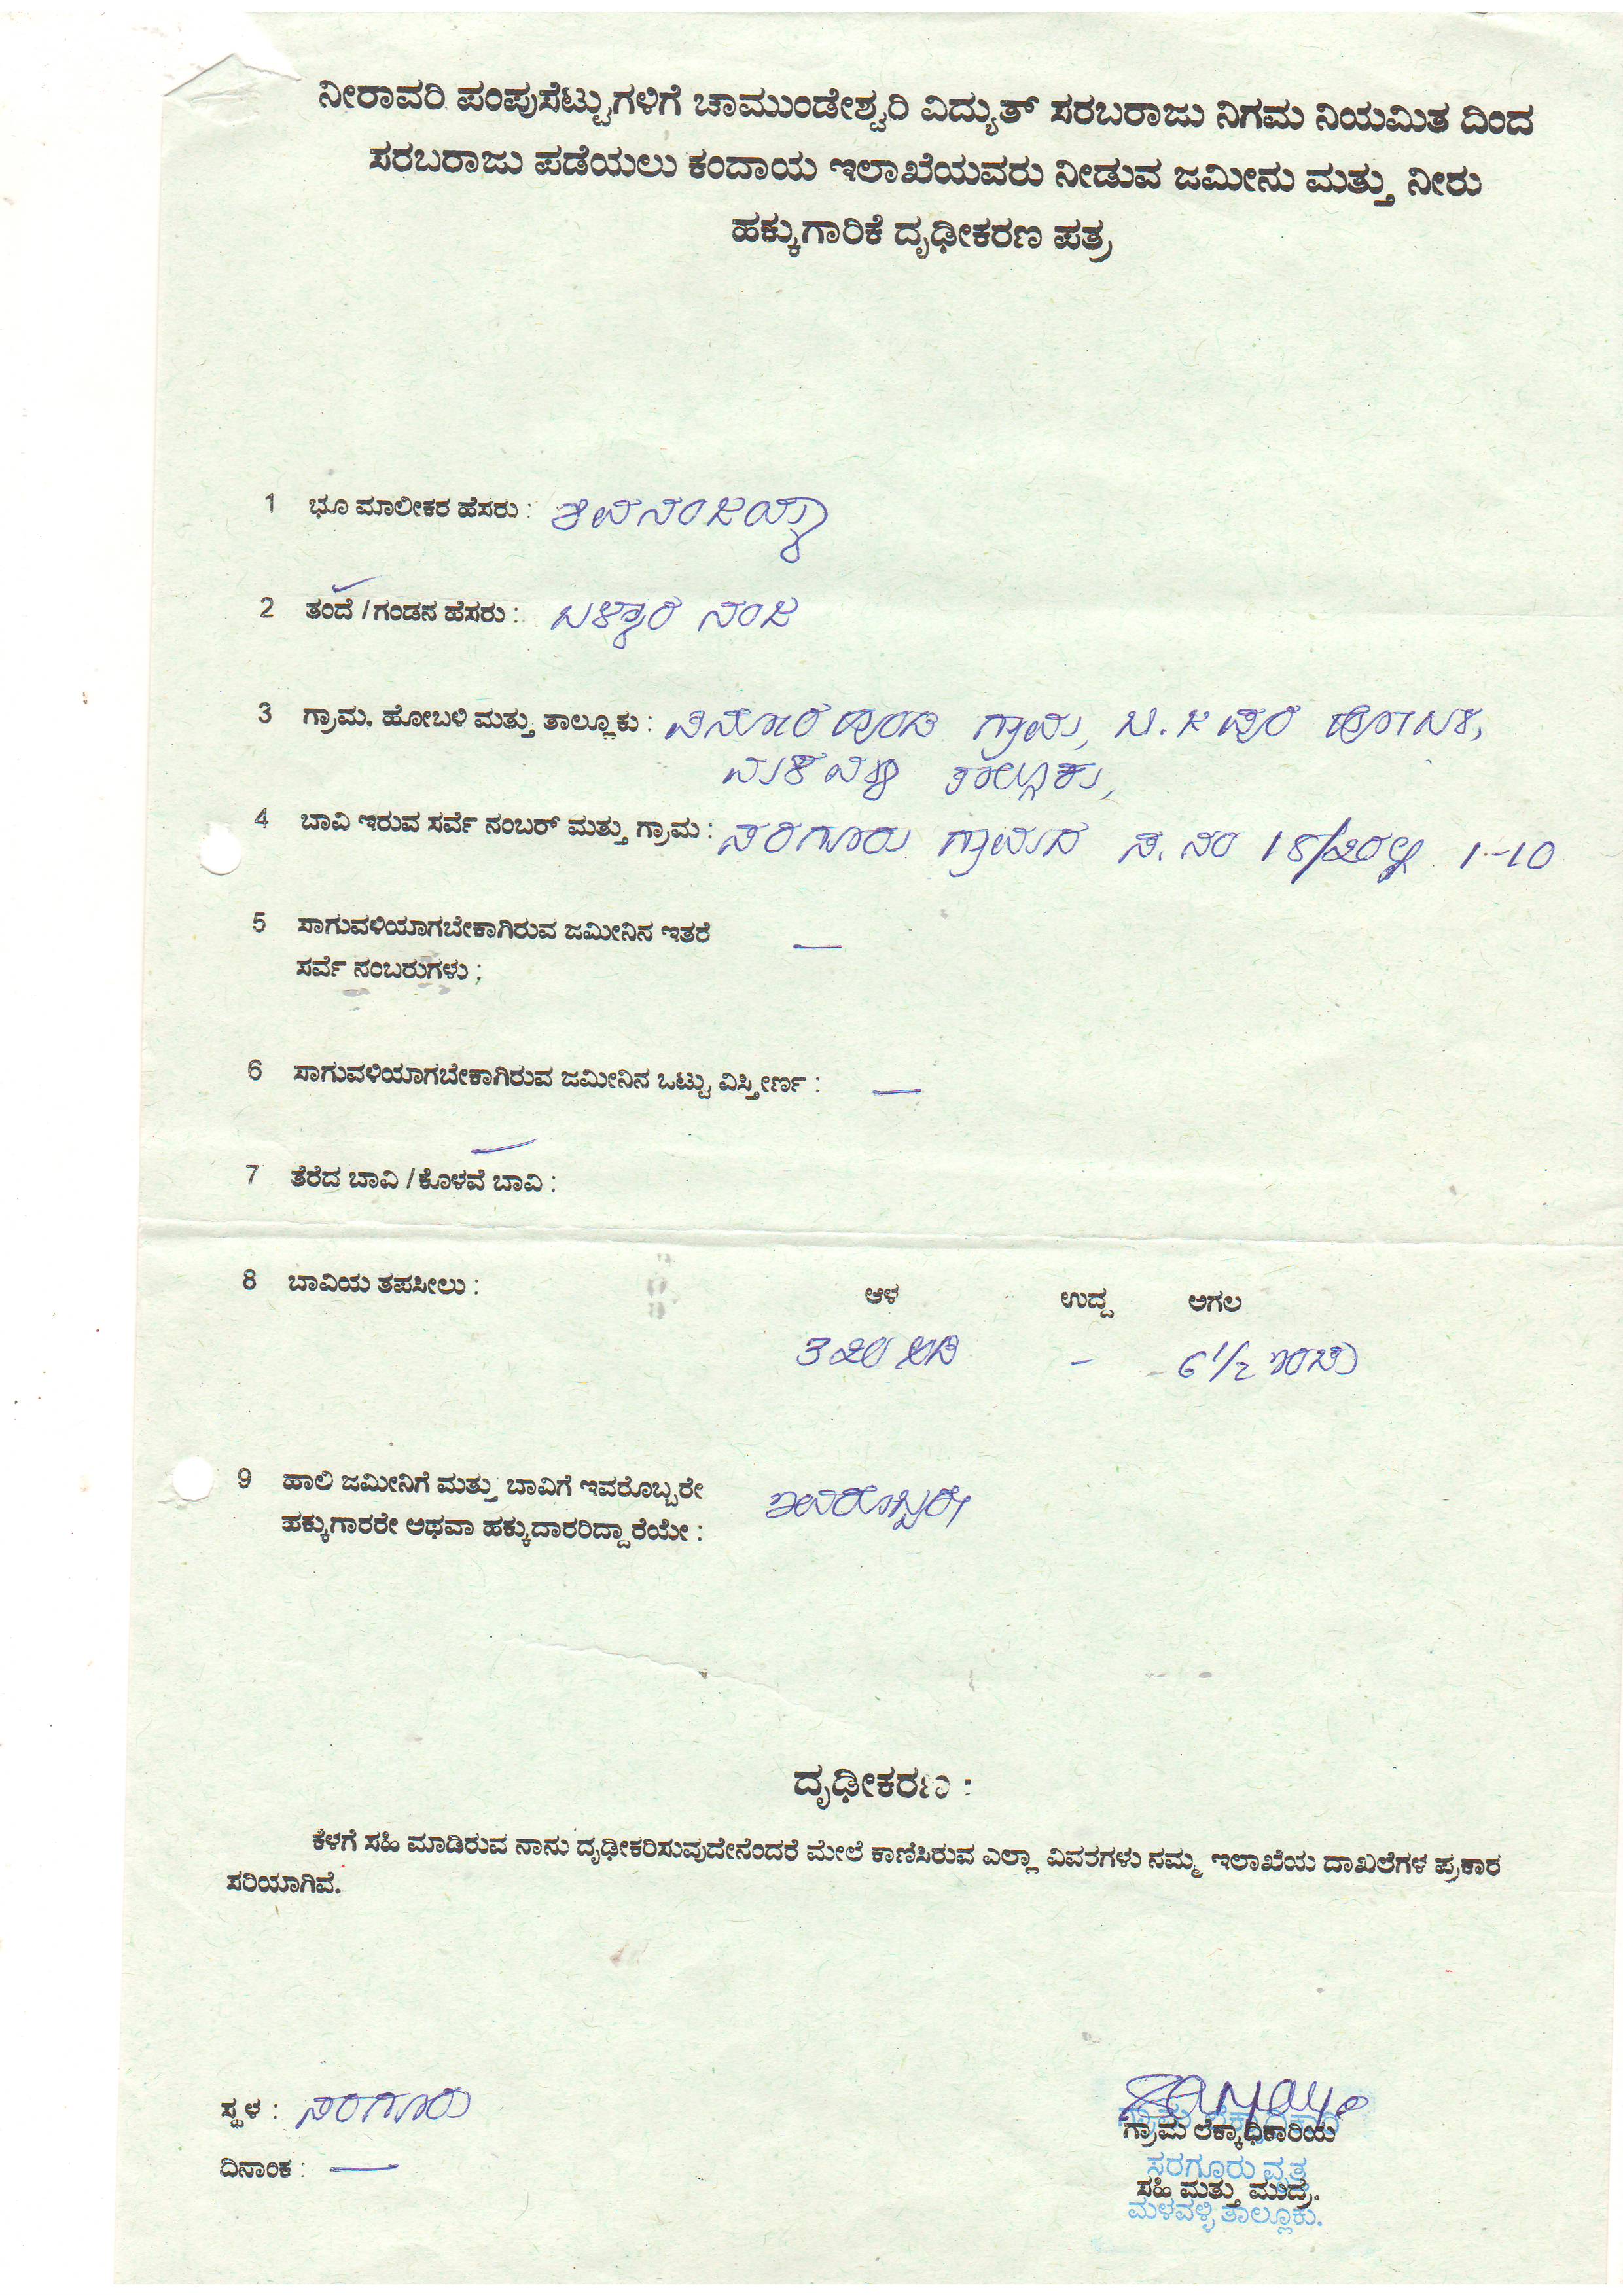 ನೀರಾವರಿ ಪಂಪುಸೆಟ್ಟುಗಳಿಗೆ ಚಾಮುಂಡೇಶ್ವರಿ ವಿದ್ಯುತ್ ಸರಬರಾಜು ನಿಗಮ ನಿಯಮಿತ ದಿಂದ
ಸರಬರಾಜು ಪಡೆಯಲು ಕಂದಾಯ ಇಲಾಖೆಯವರು ನೀಡುವ ಜಮೀನು ಮತ್ತು ನೀರು
ಹಕ್ಕುಗಾರಿಕೆ ದೃಢೀಕರಣ ಪತ್ರ
1 ಭೂ ಮಾಲೀಕರ ಹೆಸರು : ಶಿವನಂಜಯ್ಯ
2 ತಂದೆ / ಗಂಡನ ಹೆಸರು : ನಂಜ
3 ಗ್ರಾಮ, ಹೋಬಳಿ ಮತ್ತು ತಾಲ್ಲೂಕು : ಗ್ರಾಮ, ಬಿ.ಜಿ ಪುರ ಹೋಬಳಿ,
ಮಳವಳ್ಳಿ ತಾಲ್ಲೂಕು,
4 ಬಾವಿ ಇರುವ ಸರ್ವೆ ನಂಬರ್ ಮತ್ತು ಗ್ರಾಮ : ಸರಗೂರು ಗ್ರಾಮದ ಸ. ನಂ 1-10
5 ಸಾಗುವಳಿಯಾಗಬೇಕಾಗಿರುವ ಜಮೀನಿನ ಇತರೆ —
ಸರ್ವೆ ನಂಬರುಗಳು ;
6 ಸಾಗುವಳಿಯಾಗಬೇಕಾಗಿರುವ ಜಮೀನಿನ ಒಟ್ಟು ವಿಸ್ತೀರ್ಣ : —
7 ತೆರೆದ ಬಾವಿ / ಕೊಳವೆ ಬಾವಿ :
8 ಬಾವಿಯ ತಪಸೀಲು : ಆಳ ಉದ್ದ ಅಗಲ
3೨೦ ಅಡಿ - 6 1/2 ಇಂಚು
9 ಹಾಲಿ ಜಮೀನಿಗೆ ಮತ್ತು ಬಾವಿಗೆ ಇವರೊಬ್ಬರೇ ಇವರೊಬ್ಬರೇ
ಹಕ್ಕುಗಾರರೇ ಅಥವಾ ಹಕ್ಕುದಾರರಿದ್ದಾರೆಯೇ :
ದೃಢೀಕರಣ :
ಕೆಳಗೆ ಸಹಿ ಮಾಡಿರುವ ನಾನು ದೃಢೀಕರಿಸುವುದೇನೆಂದರೆ ಮೇಲೆ ಕಾಣಿಸಿರುವ ಎಲ್ಲಾ ವಿವರಗಳು ನಮ್ಮ ಇಲಾಖೆಯ ದಾಖಲೆಗಳ ಪ್ರಕಾರ
ಸರಿಯಾಗಿವೆ.
ಸ್ಥಳ : ಸರಗೂರು
ಗ್ರಾಮ ಲೆಕ್ಕಾಧಿಕಾರಿ
ಗ್ರಾಮ ಲೆಕ್ಕಾಧಿಕಾರಿಯ
ದಿನಾಂಕ : — ಸರಗೂರು ವೃತ್ತ
ಸಹಿ ಮತ್ತು ಮುದ್ರೆ.
ಮಳವಳ್ಳಿ ತಾಲ್ಲೂಕು.